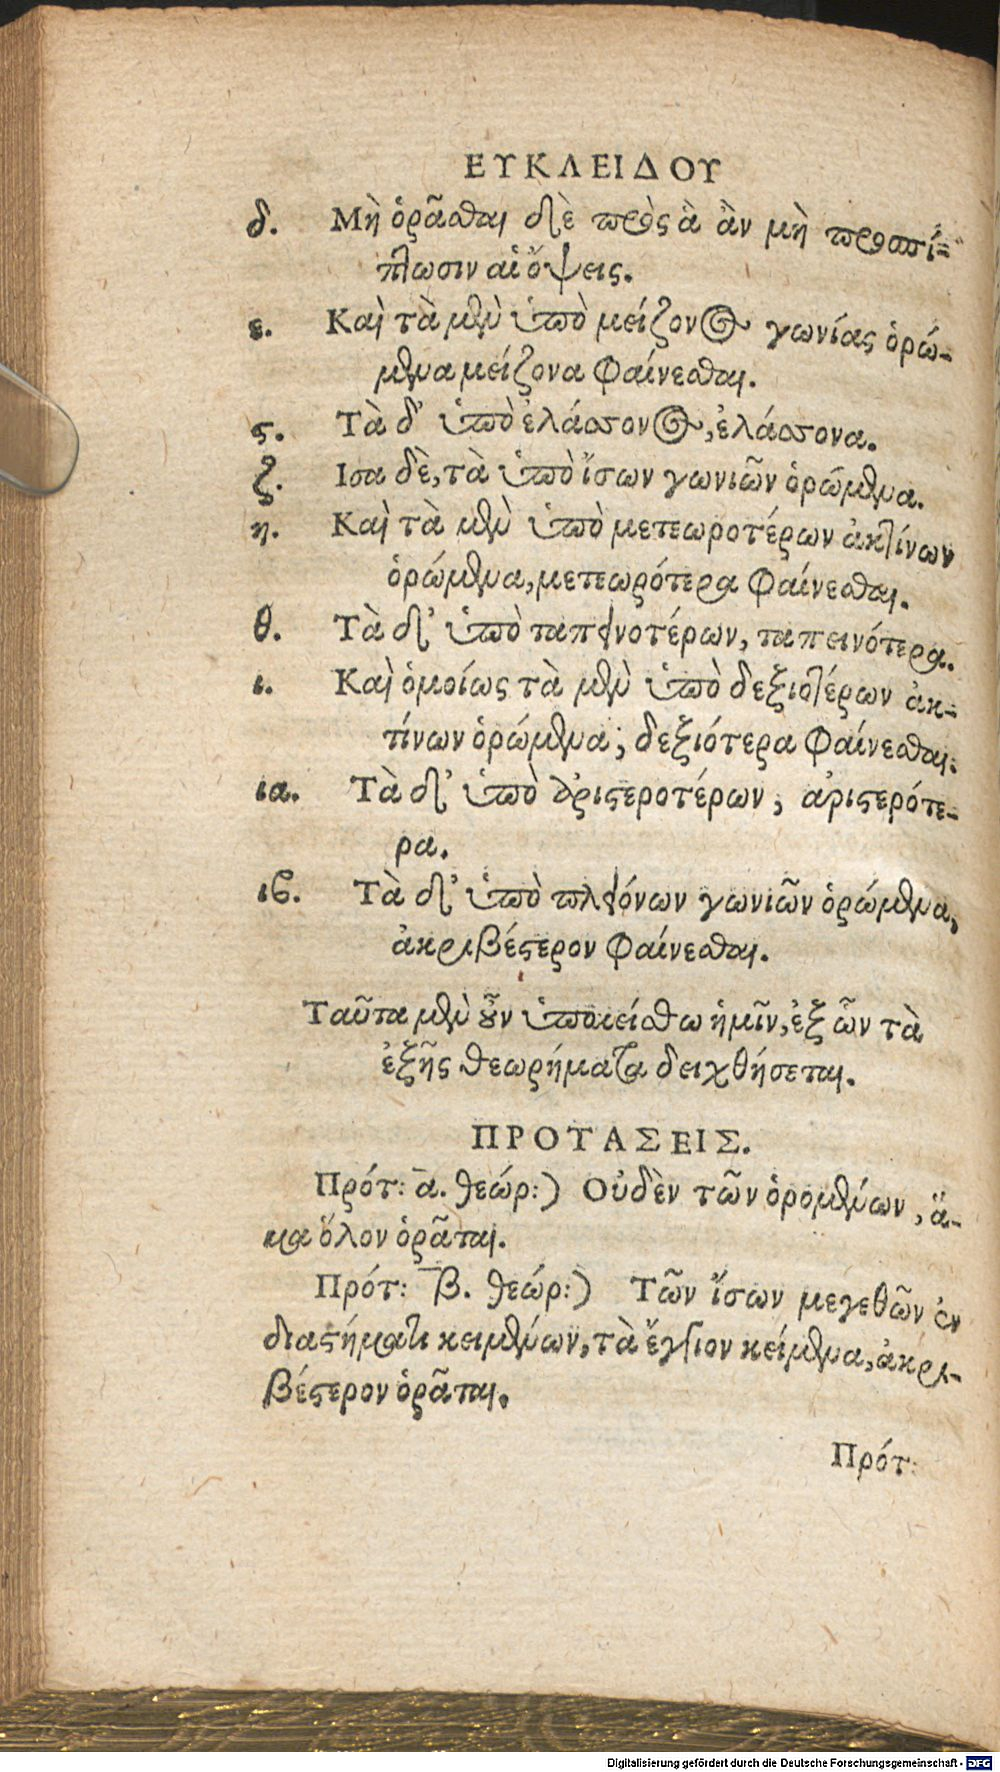 ΕΥΚΛΕΙΔΟΥ
δ. Μὴ ὁρᾶσθαι δὲ πρὸς ἃ ἂν μὴ προσπί-
πτωσιν αἱ ὄψεις.
ε. Καὶ τὰ μὲν ὑπὸ μείζονος γωνίας ὁρώ-
μενα μείζονα φαίνεσθαι.
ς. Τὰ δ' ὑπὸ ἐλάσσονος, ἐλάσσονα.
ζ. Ισα δὲ, τὰ ὑπὸ ἴσων γωνιῶν ὁρώμενα.
η. Καὶ τὰ μὲν ὑπὸ μετεωροτέρων ἀκτίνων
ὁρώμενα, μετεωρότερα φαίνεσθαι.
θ. Τὰ δ' ὑπὸ ταπεινοτέρων, ταπεινότερα.
ι. Καὶ ὁμοίως τὰ μὲν ὑπὸ δεξιοτέρων ἀκ-
τίνων ὁρώμενα, δεξιότερα φαίνεσθαι.
ια. Τὰ δ' ὑπὸ ἀριστεροτέρων, ἀριστερότε-
ρα.
ιβ. Τὰ δ' ὑπὸ πλειόνων γωνιῶν ὁρώμενα,
ἀκριβέστερον φαίνεσθαι.
Ταῦτα μὲν οὖν ὑποκείσθω ἡμῖν, ἐξ ὧν τὰ
ἑξῆς θεωρήματα δειχθήσεται.
ΠΡΟΤΑΣΕΙΣ.
Πρότ: α. θεώρ:) Οὐδὲν τῶν ὁρομένων, ἅ-
μα ὅλον ὁρᾶται.
Πρότ: β. θεώρ:) Τῶν ἴσων μεγεθῶν ἐν
διαστήματι κειμένων, τὰ ἔγγιον κείμενα, ἀκρι-
βέστερον ὁρᾶται.
Πρότ:
Digitalisierung gefördert durch die Deutsche Forschungsgemeinschaft - DFG